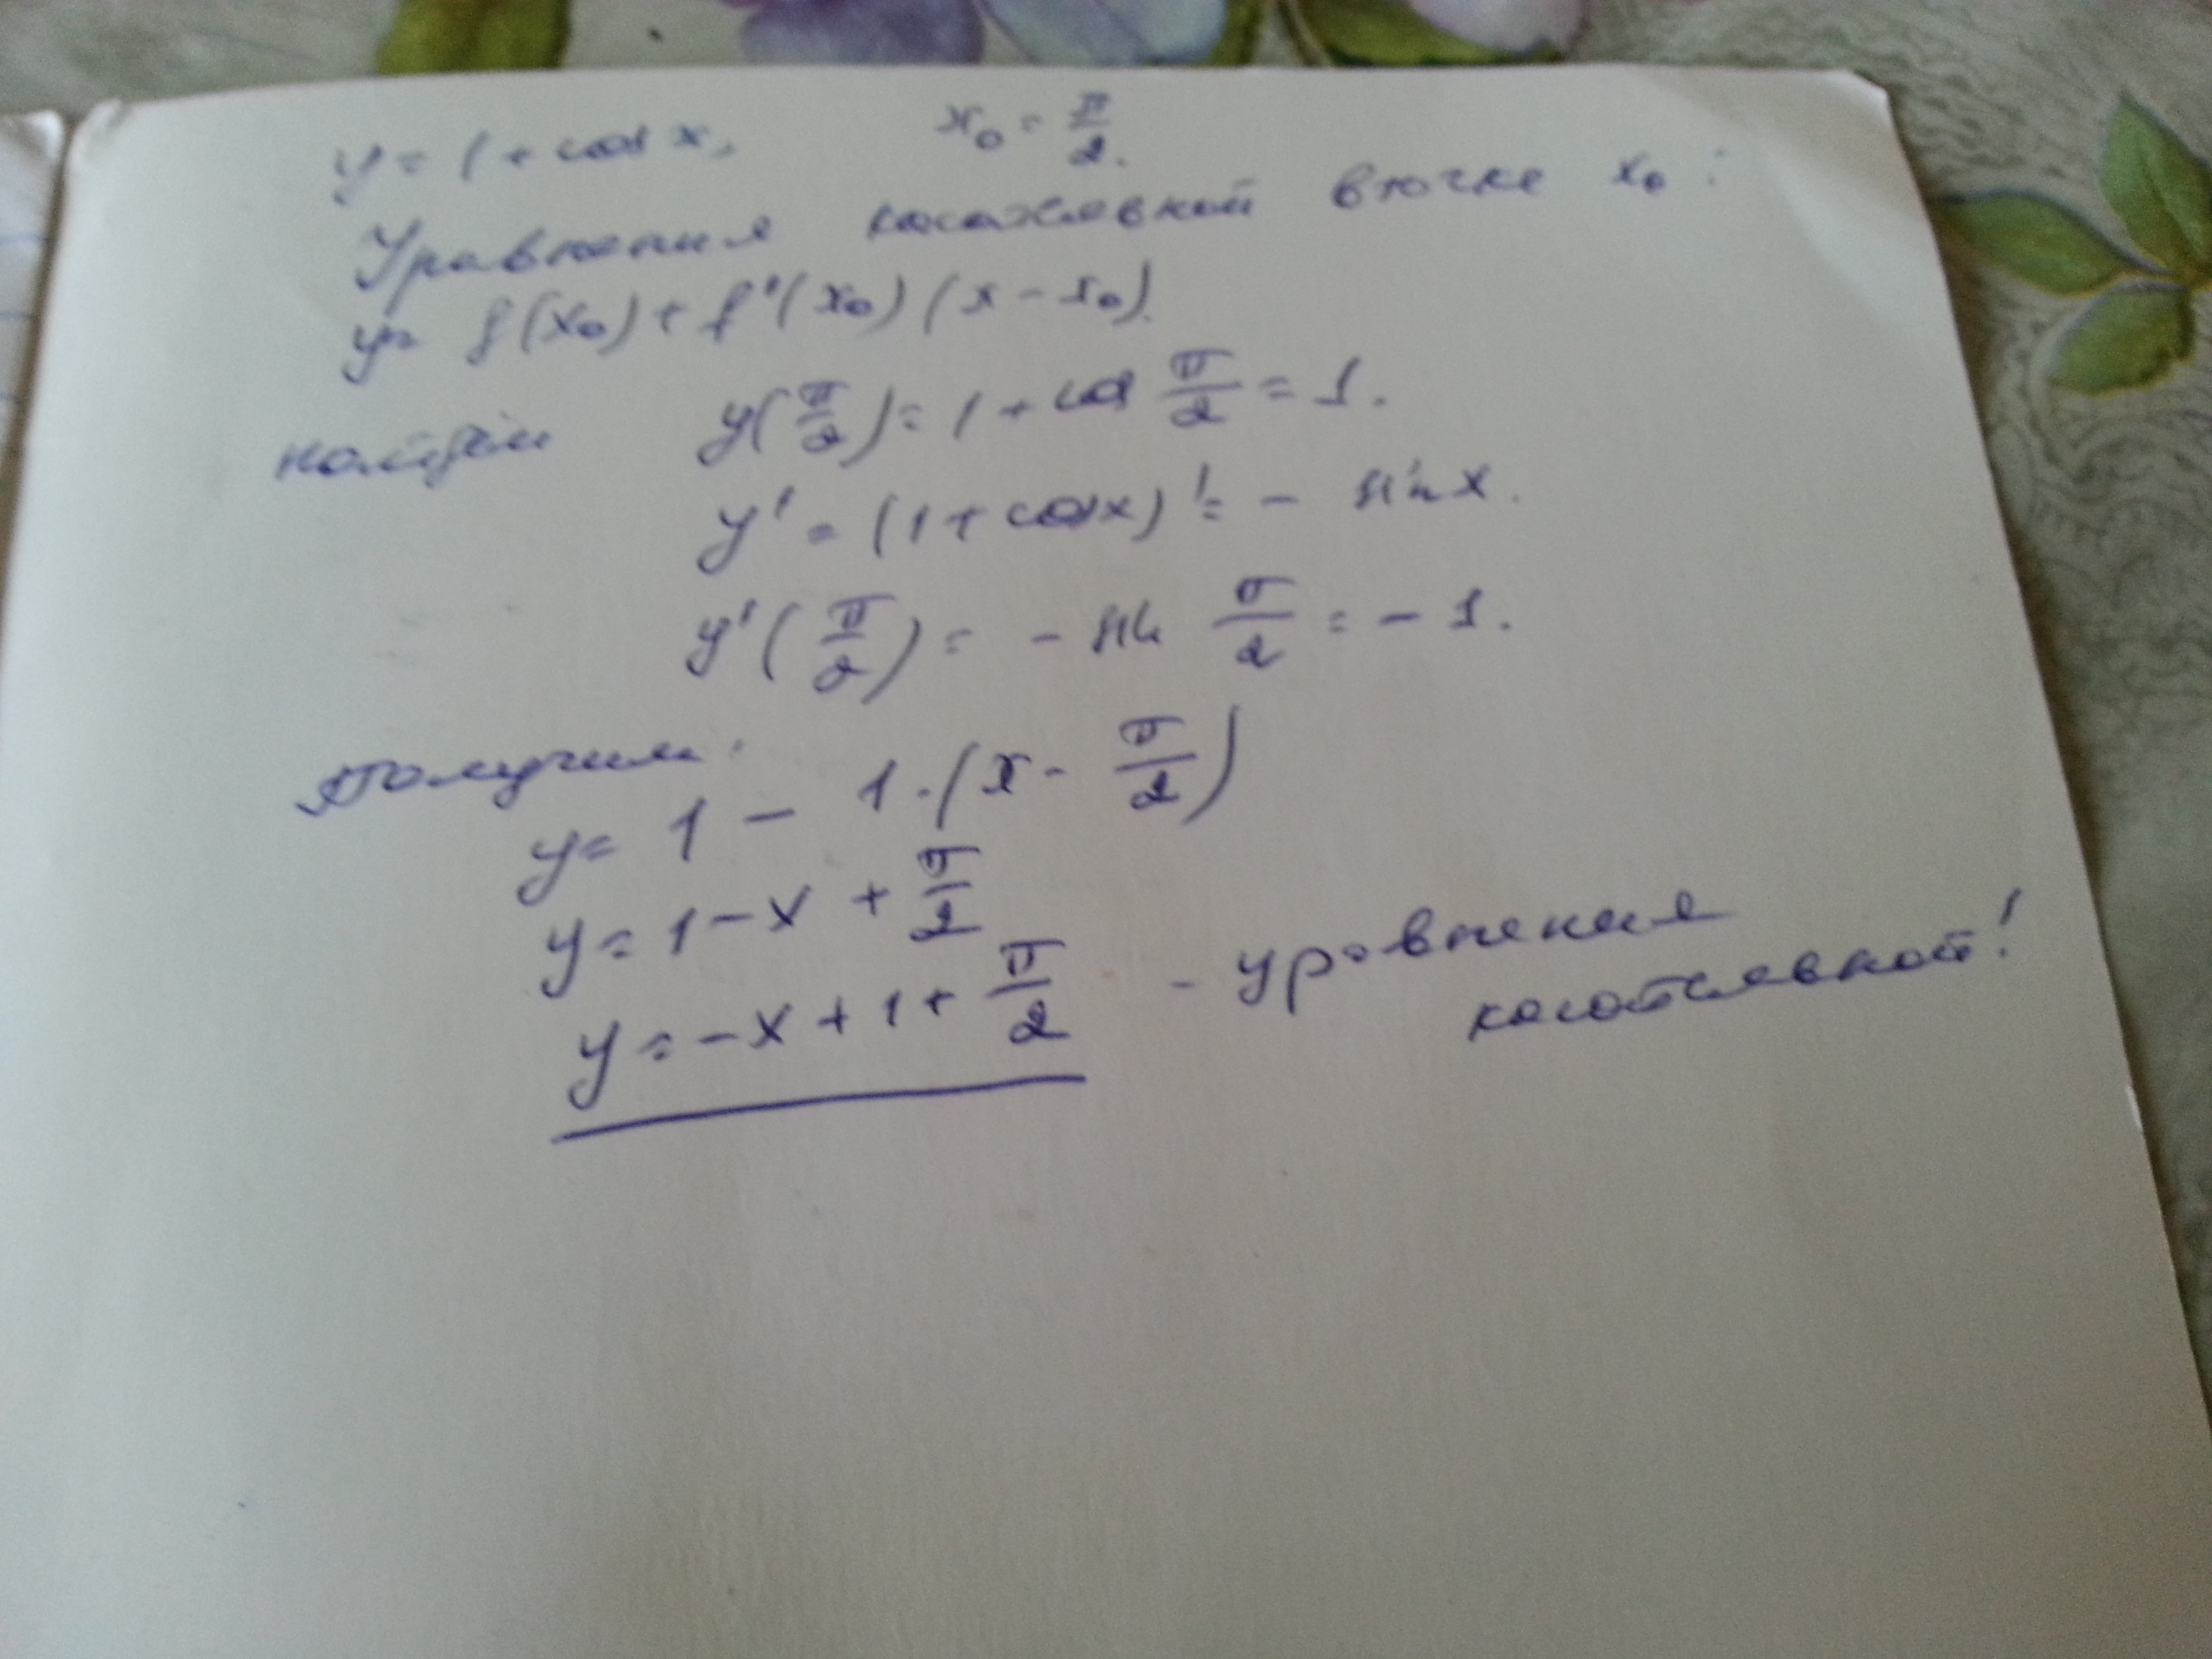 y = 1 + cos x, x₀ = π/2.
Уравнения касательной в точке x₀:
y = f(x₀) + f'(x₀)(x - x₀).
найдём y(π/2) = 1 + cos π/2 = 1.
y' = (1 + cos x)' = - sin x.
y'(π/2) = - sin π/2 = - 1.
Получим:
y = 1 - 1·(x - π/2)
y = 1 - x + π/2
y = -x + 1 + π/2 - уравнения
касательной!